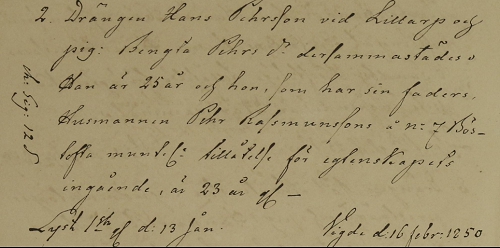 2. Drängen Hans Pehrsson vid Lillarp och
pig: Bengta Pehrs dr dersammastädes.
Han är 25 år och hon, som har sin faders,
Husmannen Pehr Rasmunssons å No 7 Bos-
lofta muntl: tillåtelse för egtenskapets
ingående, är 23 år gl —
Lyst 1sta gl d: 13 Jan.
Vigde d: 16 febr: 1850